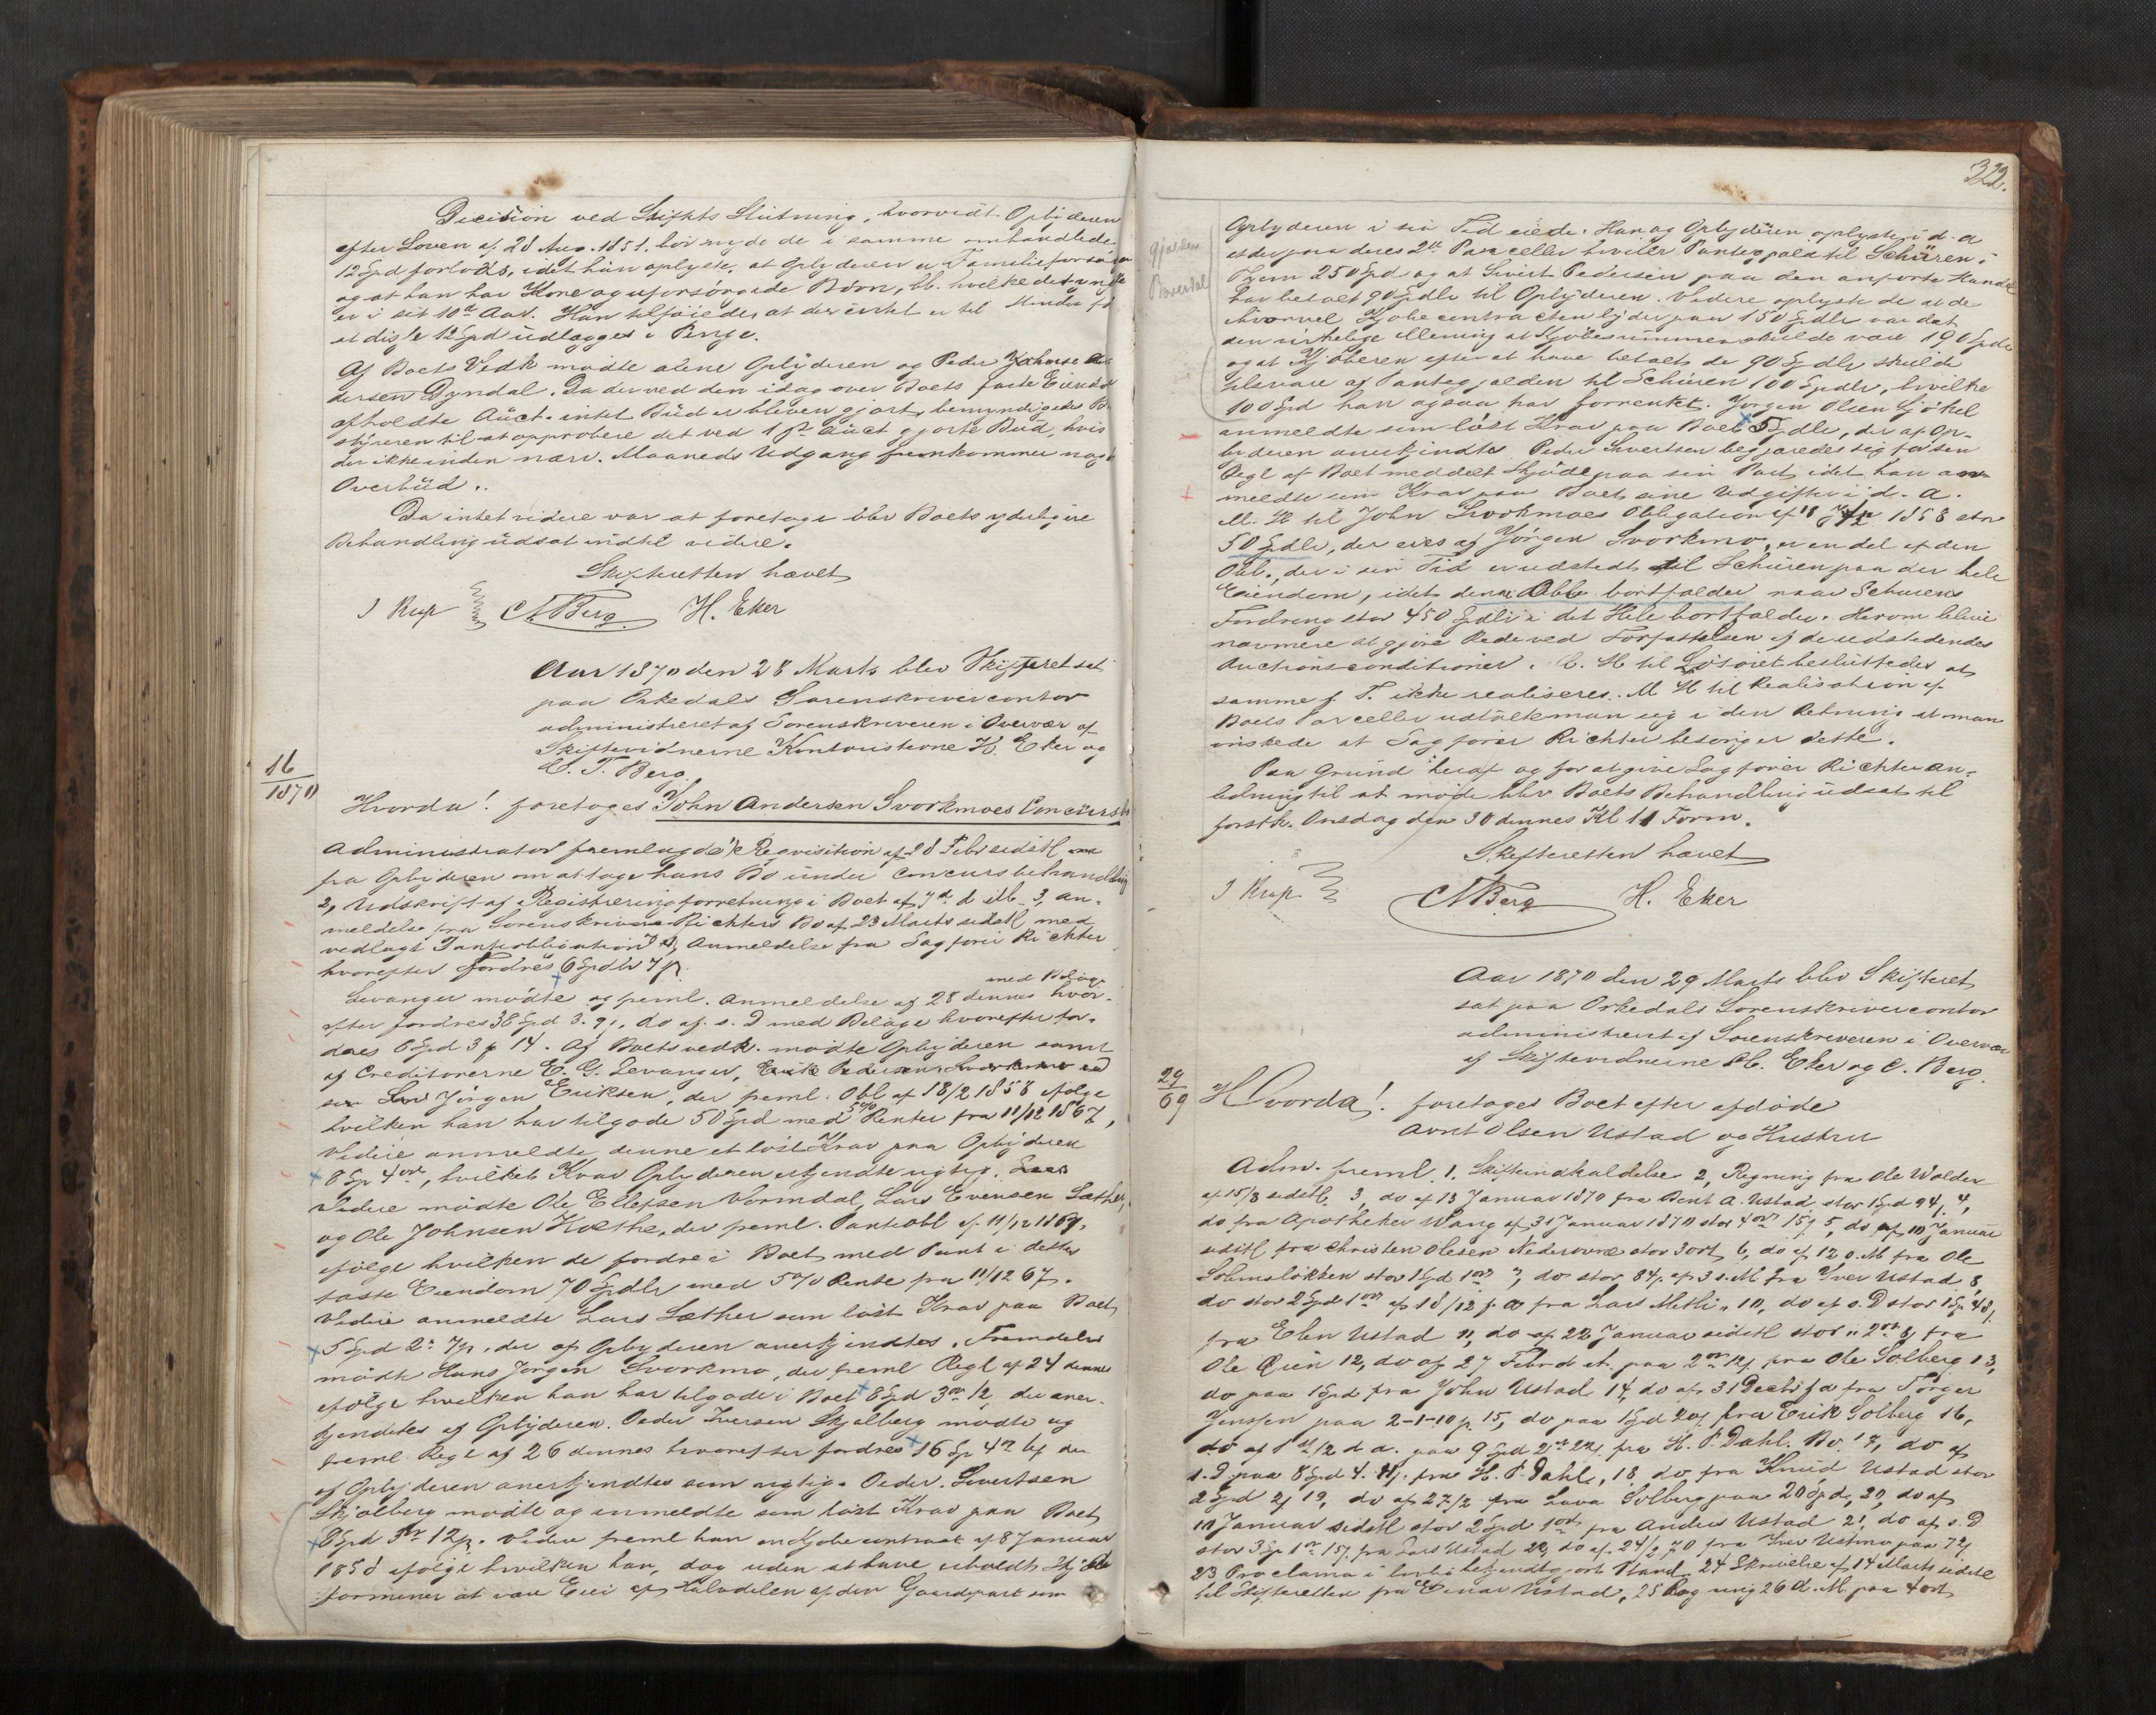 Decision ved Skiftets Slutning, hvorvidt Opbyderen
efter Loven af 28 Aug. 1851. bør nyde de i samme omhandlede
12 Spd forlods, idet han oplyste, at Opbyderen er Familieforsørger
og at han har Kone og uforsørgede Børn, bl. hvilke det yngste
er i sit 10de Aar. Han tilføiede, at der intet er til Hinder for
at disse 12 Spd udlægges i Penge.
Af Boets Vedk mødte alene Opbyderen og Peder
dersen Dyrndal. Da der ved den idag over Boets faste Eiendom
afholdte Auct. intet Bud er bleven gjort, bemyndigedes Be-
styreren til at approbere det ved 1ste Auct gjorte Bud, hvis
der ikke inden nærv. Maaneds Udgang fremkommer noget
Overbud..
Da intet videre var at foretage blev Boets yderligere
Behandling udsat indtil videre.
Skifteretten hævet
J Krup CNBerg H. Eker
Aar 1870 den 28 Marts blev Skifteret sat
paa Orkedals Sorenskrivercontor
administreret af Sorenskriveren i Overvær af
Skiftevidnerne Kontoristerne H. Eker og
C. T. Berg.
16
1870
Hvorda! foretoges John Andersen Svorkmoes Concursbo
Administrator fremlagde 1, Reqvisition af 28 Febr sidstl
fra Opbyderen om at tage hans Bo under Concursbehandling
2, Udskrift af Registreringsforretning i Boet af 7de d. M. 3, An-
meldelse fra Sorenskriver Richters Bo af 23 Marts sidstl med
vedlagt Pantobligation 4, Anmeldelse fra Sagfører Richter
hvorefter fordres 6 Spdlr 7 s.
med Bilag
Levanger mødte og freml. Anmeldelse af 28 dennes hvor-
efter fordres 38 Spd 3. 9s. do af s. D med Bilage hvorefter for-
dres 6 Spd 3 s 14. Af Boets vedk. mødte Opbyderen samt
af Creditorerne E. G. Levanger, Erik Pedersen Svorkmo ved
sin Jørgen Eriksen, der freml. Obl af 18/2 1858 ifølge
hvilken han har tilgode 50 Spd med 5% Renter fra 11/12 1867,
Videre anmeldte denne et løst Krav paa Opbyderen
8 Sp 4 ort, hvilket Krav Opbyderen erkjendte rigtigt.
Videre mødte Ole Ellefsen Vormdal, Lars Evensen Sæther,
og Ole Johnsen Holthe, der freml. Pantobl af 11/12 1867,
ifølge hvilken de fordre i Boet med Pant i dettes
faste Eiendom 70 Spdlr med 5% Rente fra 11/12 67.
Videre anmeldte Lars Sæther som løst Krav paa Boet
5 Spd 2. 7s, der af Opbyderen anerkjendtes. Fremdeles
mødte Hans Jørgen Svorkmo, der freml Regl af 24 dennes
ifølge hvilken han har tilgode i Boet 8 Spd 3 ort 12, der aner-
kjendtes af Opbyderen. Peder Iversen Skjølberg mødte og
freml Regl af 26 dennes hvorefter fordres 16 Sp 4 ort der
af Opbyderen anerkjendtes som rigtig. Peder Sivertsen
Skjølberg mødte og anmeldte som løst Krav paa Boet
8 Spd 3 ort 12s. Videre freml han en Kjøbecontract af 8 Januar
1858 ifølge hvilken han, dog uden at have erholdt Skjøde
formener at være Eier af Halvdelen af den Gaardpart som
322.
Gjælden
Opbyderen i sin Tid eiede. Han og Opbyderen oplyste i d. A
at der paa deres 2de Parceller hviler Pantegjæld til Schüren i
Trhjem 250 Spd og at Sivert Pedersen paa den anførte Handel
har betalt 90 Spdlr til Opbyderen. Videre oplyste de at de
hvorvel Kjøbecontracten lyder paa 150 Spdlr var det
den virkelige Mening at Kjøbesummen skulde være 190 Spdlr
og at Kjøberen efter at have betalt de 90 Spdlr skulde
tilsvare af Pantegjælden til Schüren 100 Spdlr, hvilke
100 Spd han ogsaa har forrentet. Jørgen Olsen Sjøhel
anmeldte som løst Krav paa Boet 5 Spdlr, der af Op-
byderen anerkjendtes. Peder Sivertsen begjærede sig for sin
Regl af Boet meddelt Skjøde paa sin Part idet han an-
meldte som Krav paa Boet, sine Udgifter i d. A.
M. H til John Svorkmoes Obligation af 18 1858 stor
50 Spdlr, der eies af Jørgen Svorkmo, er en del af den
Obl., der i sin Tid er udstedt til Schüren paa den hele
Eiendom, idet denne Obl. bortfalder naar Schürens
Fordring stor 450 Spdlr i det Hele bortfalder. Herom bliver
nærmere at gjøre Rede ved Forfattelsen af de udstedendes
Auctionsconditioner. M. H til Løsøret besluttedes at
samme f. T. ikke realiseres. M H til Realisation af
Boets Parceller udtalte man sig i den Retning at man
ønskede at Sagfører Richter besørger dette.
Paa Grund heraf og for at give Sagfører Richter An-
ledning til at møde blev Boets Behandling udsat til
førstk. Onsdag den 30 dennes Kl 11 Form.
Skifteretten hævet
J Krup CNBerg H. Eker
Aar 1870 den 29 Marts blev Skifteret
sat paa Orkedals Sorenskrivercontor
administreret af Sorenskriveren i Overvær
af Skiftevidnerne H. Eker og C. Berg.
29
69
Hvorda! foretoges Boet efter afdøde
Arnt Olsen Ustad og Hustru
Adm. freml. 1. Skifteindkaldelse 2, Regning fra Ole Wolden
af 15/3 sidstl. 3, do af 13 Januar 1870 fra Bent A. Ustad, stor 1 Spd 94s. 4,
do fra Apotheker Wang af 31 Januar 1870 stor 4 ort 15s 5, do af 10 Januar
sidstl fra Christen Olesen Nederøvne stor 3 ort, 6, do af 12 s. M fra Ole
Sohmsløkken stor 1 Spd 1 ort 7, do stor 84s. af 3 s. M. fra Iver Ustad, 8,
do stor 2 Spd 1 ort af 18/12 f. A fra Lars Metli. 10, do af s. D stor 1 Sp 48s.
fra Elen Ustad 11, do af 22 Januar sidstl stor 2 ort 8s fra
Ole Qvén 12, do af 27 Febr d. A. paa 2 ort 12s fra Ole Solberg 13,
do paa 1 Spd fra John Ustad 14, do af 31 Decbr f A fra Torger
Jenssen paa 2-1-10 s. 15, do paa 1 Spd 20s fra Erik Solberg 16,
do af 1/2 d A. paa 9 Spd 2 ort 22s. fra H. P. Dahl. Bo. 17, do af
s. D paa 8 Spd 4. 11s. fra H. P. Dahl, 18 do fra Knud Ustad stor
2 Spd 2s 19, do af 27/2 fra Lava Solberg paa 20 Spd, 20, do af
10 Januar sidstl stor 2 Spd 1 ort fra Anders Ustad 21 do af s. D
stor 3 Sp 1 ort 15s. fra Lars Ustad 22, do af 24/2 70 fra Iver Ustmo paa 72s
23 Proclama i lovlig bekjendtgjort Stand. 24 Skrivelse af 14 Marts sidstl
til Skifteretten fra Einar Ustad, 25 Regning 26 d. M. paa 4 ort